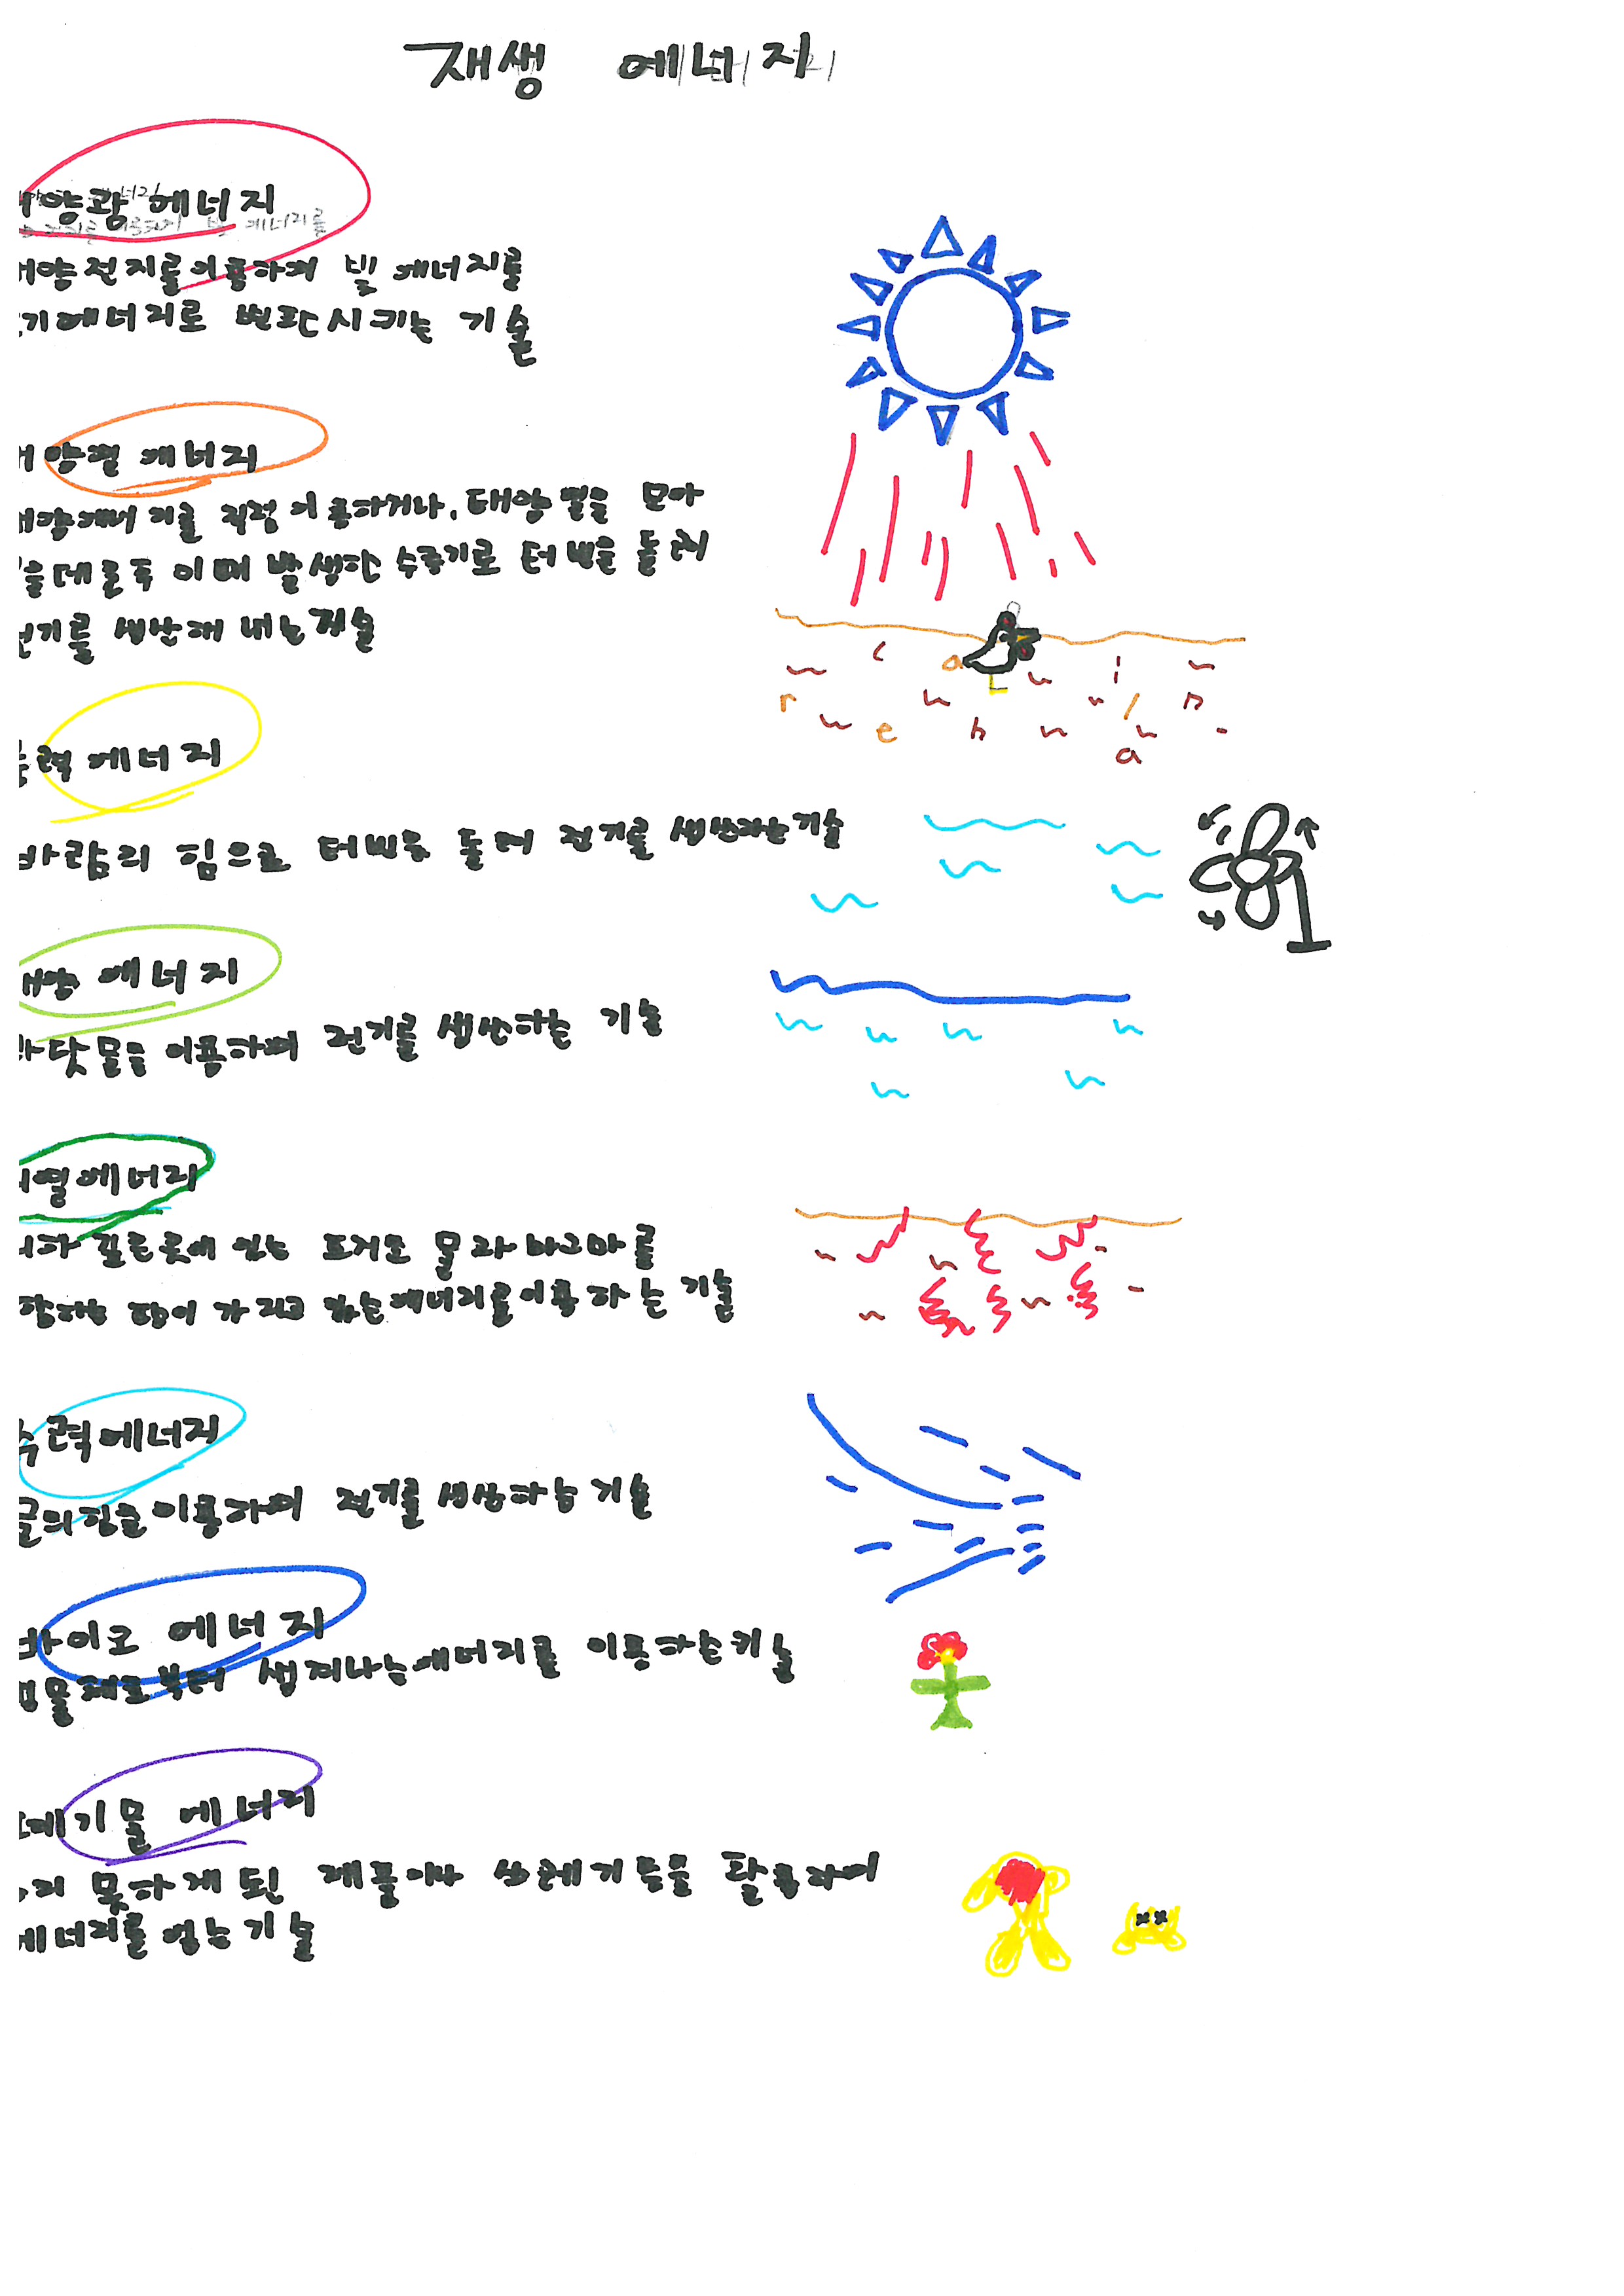 재생 에너지
양광 에너지
양전지를 이용하여 빛 에너지를
기에너지로 변환시키는 기술
양열 에너지
양에너지를 직접 이용하거나, 태양열을 모아
이때 발생한 수증기로 터빈을 돌려
기를 생산해 내는 기술
력 에너지
바람의 힘으로 터빈을 돌려 전기를 생산하는 기술
양 에너지
닷물을 이용하여 전기를 생산하는 기술
열에너지
깊은 곳에 있는 물과 마그마를
가지고 있는 에너지를 이용하는 기술
력에너지
물의 힘을 이용하여 전기를 생산하는 기술
바이오 에너지
물체로부터 생겨나는 에너지를 이용하는 기술
기물 에너지
못하게 된 제품이나 쓰레기 등을 활용하여
에너지를 얻는 기술